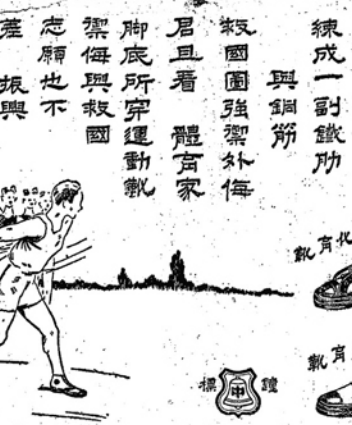 練成一副鐵肋
與鋼筋
救國圖強禦外侮
君且看 體育家
脚底所穿運動靴
禦侮與救國
志願也不
差 振興
育靴
育靴
鐘 中 標